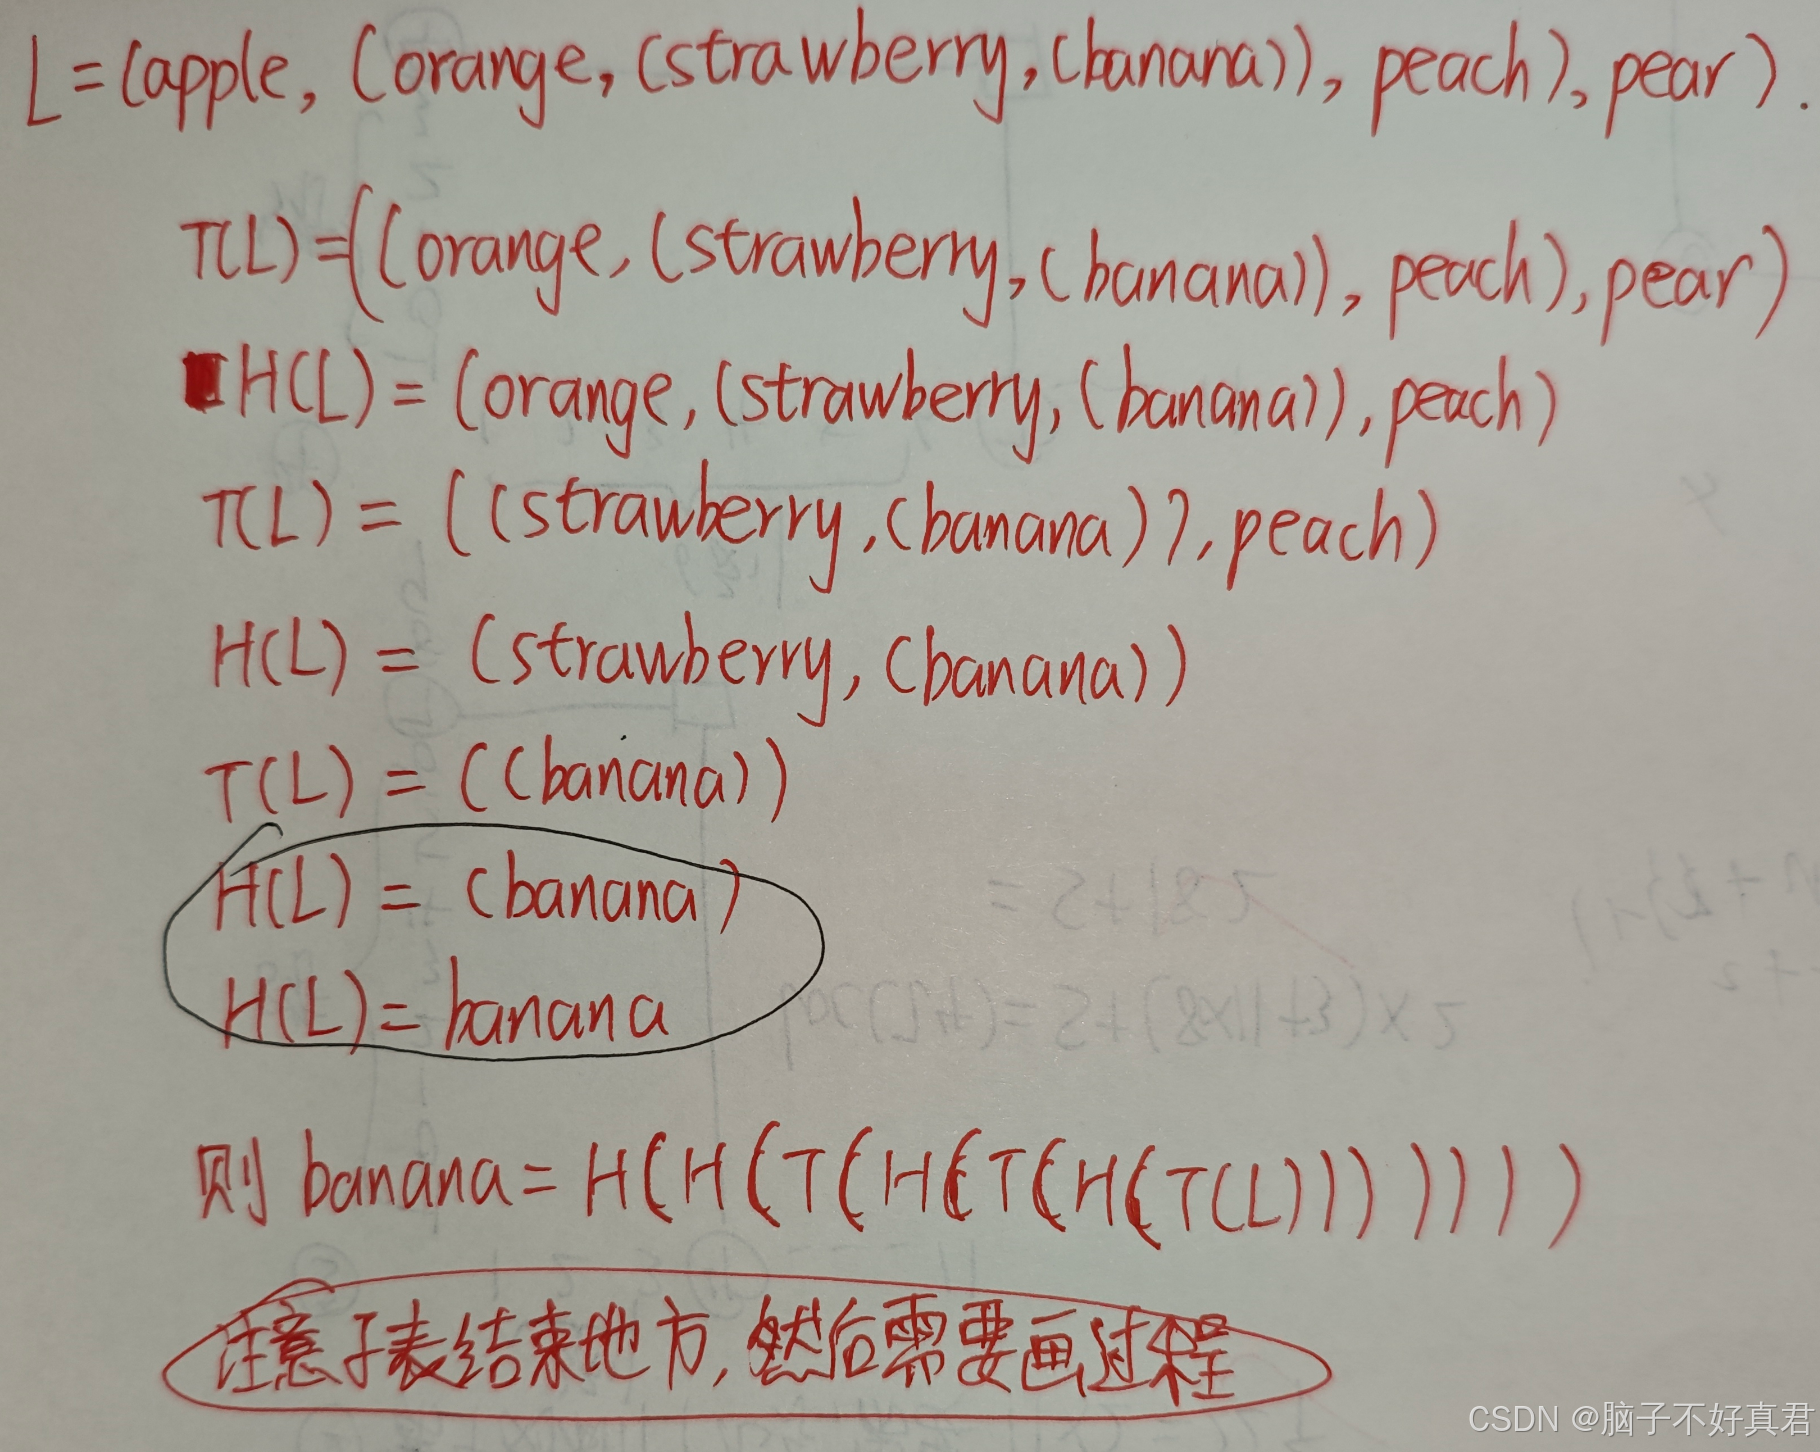 L=(apple, (orange, (strawberry, (banana)), peach), pear).
T(L)=((orange, (strawberry, (banana)), peach), pear)
H(L)=(orange, (strawberry, (banana)), peach)
T(L)=((strawberry, (banana)), peach)
H(L)=(strawberry, (banana))
T(L)=((banana))
H(L)=(banana)
H(L)=banana
则 banana=H(H(T(H(T(H(T(L)))))))
注意子表结束地方, 然后需要画过程
CSDN @脑子不好真君